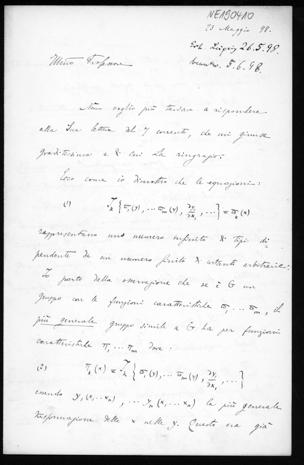 23 Maggio 98.
26.5.98
5.6.98.
Illmo Professore
Non voglio più tardare a rispondere
alla Sua lettera del 7 corrente, che mi giunse
graditissima e di cui La ringrazio.
Ecco come io dimostro che le equazioni:
(1)
rappresentano un numero infinito di tipi di
pendente da un numero finito di costanti arbitrarie.
Io parto dalla osservazione che se è G un
gruppo con le funzioni caratteristiche π₁ ... πₘ, il
più generale gruppo simile a G ha per funzioni
caratteristiche π₁ ... πₘ dove:
(2)
essendo y₁(x₁ ... xₙ), ... yₙ(x₁ ... xₙ) la più generale
trasformazione delle x nelle y. Questo era già